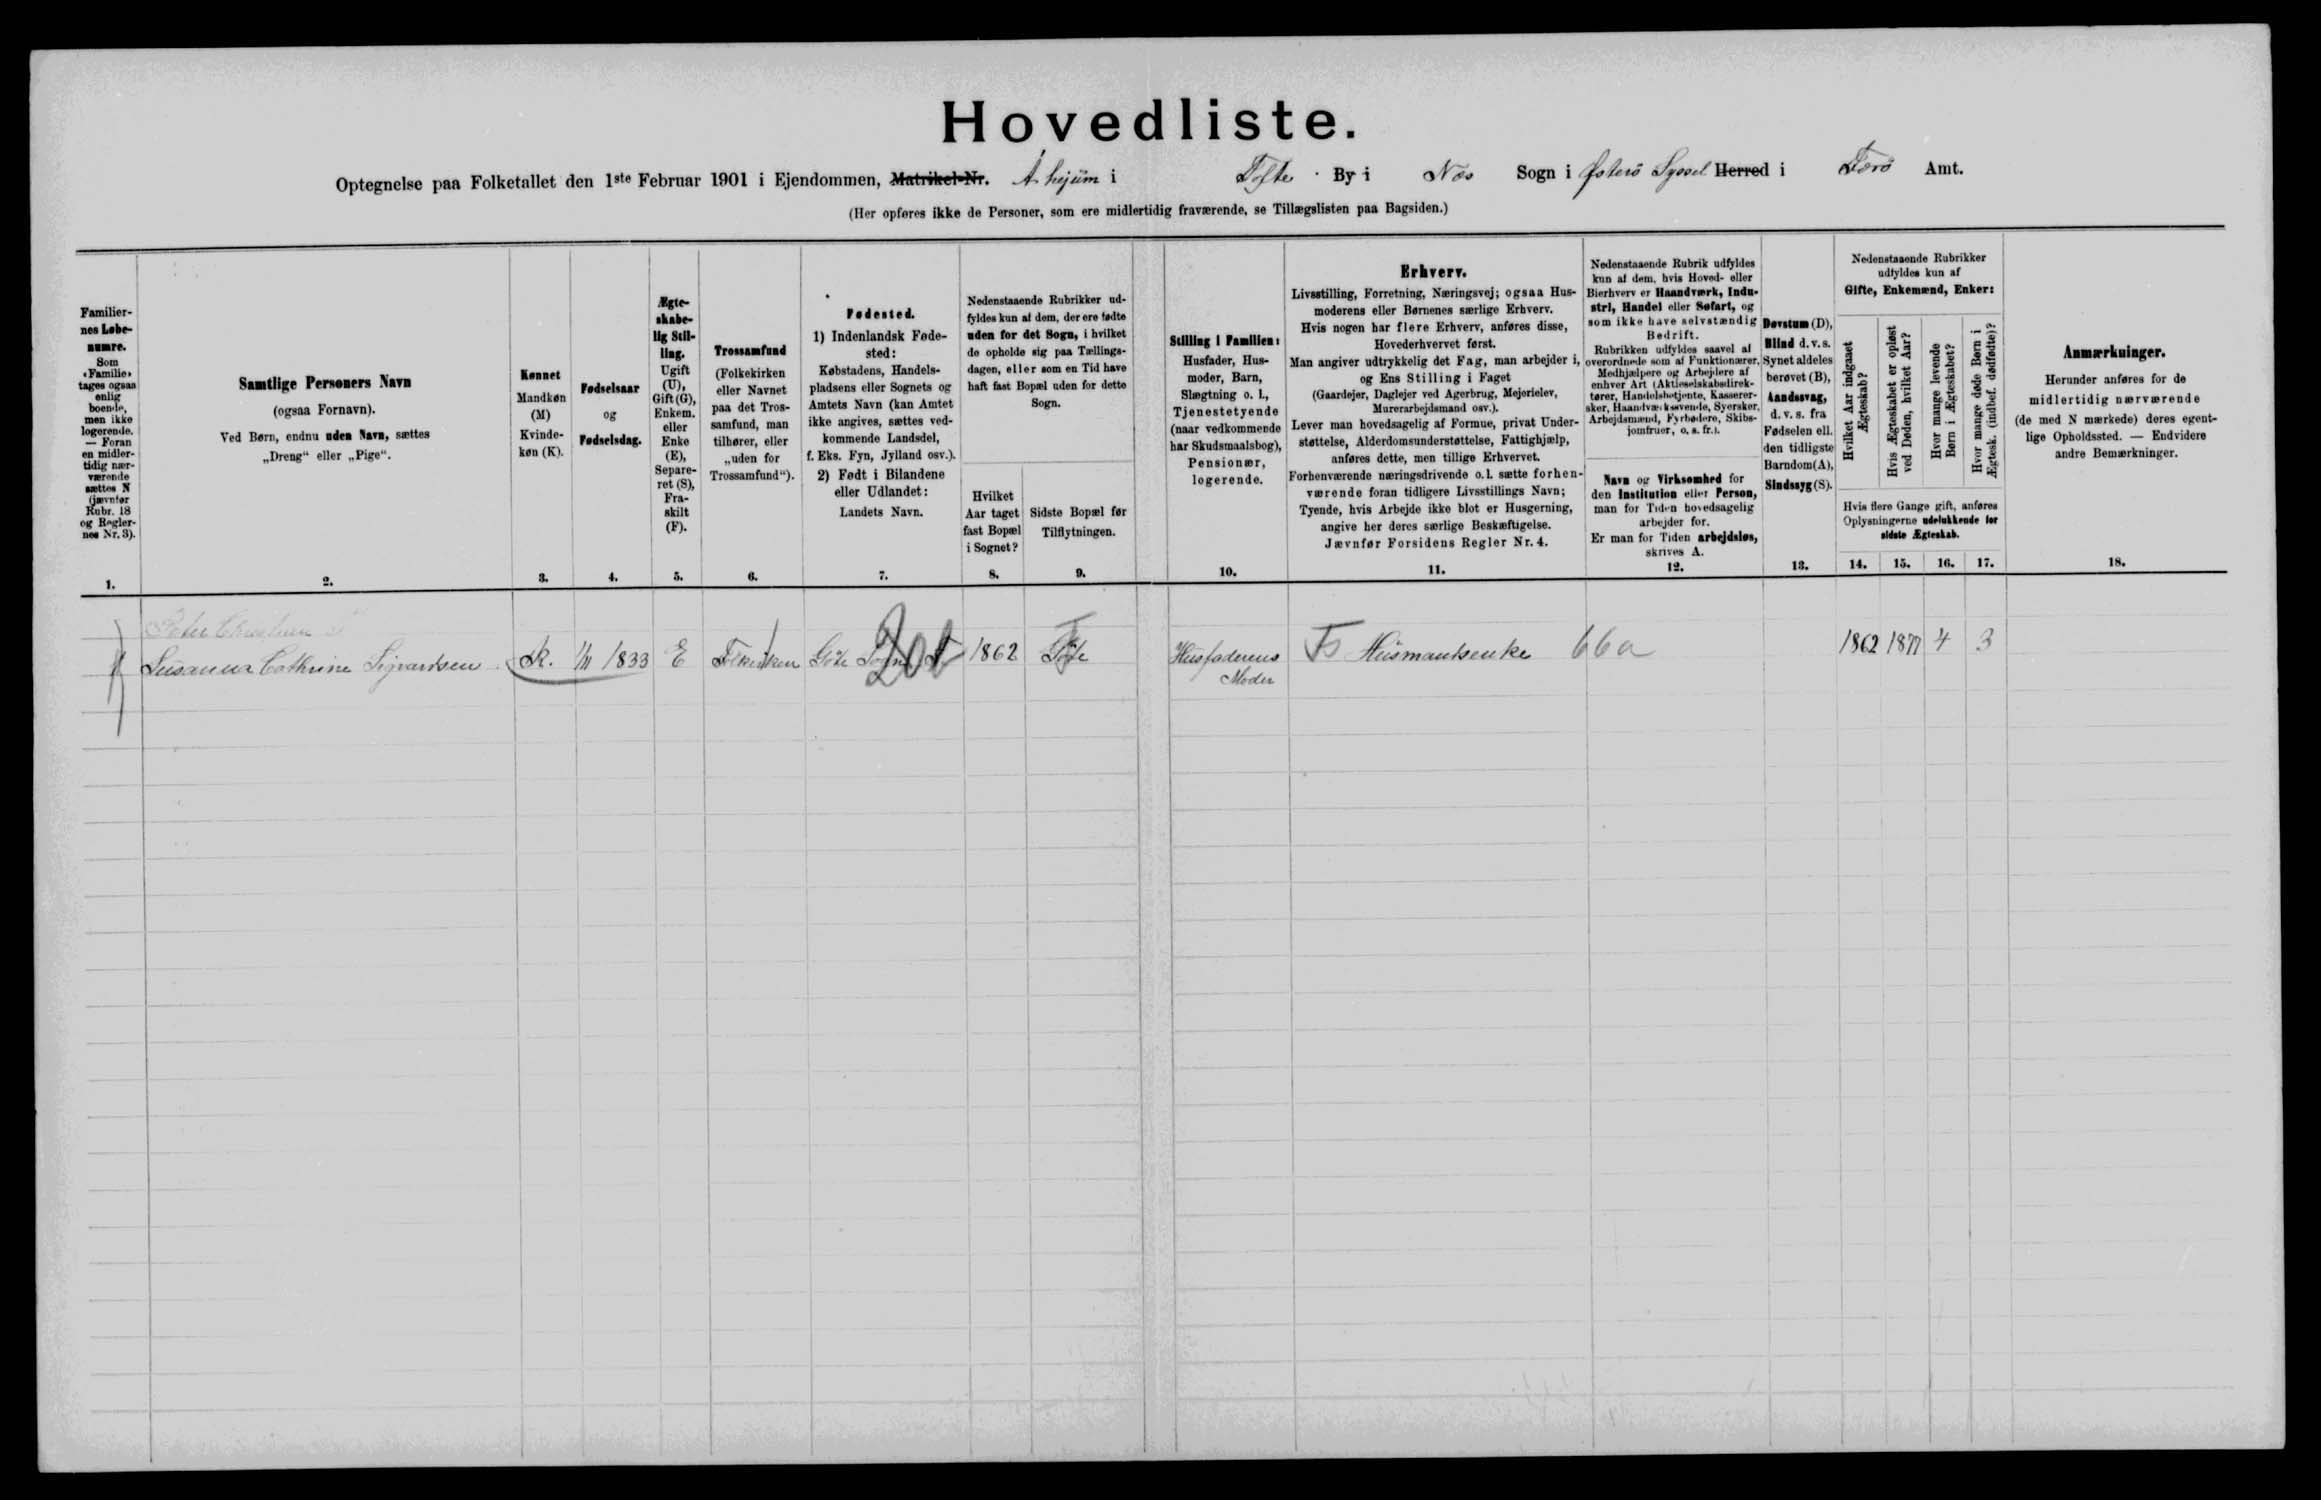 Hovedliste.
Optegnelse paa Folketallet den 1ste Februar 1901 i Ejendommen, Matrikel-Nr. Á hejüm i Tofte By i Næs Sogn i Østerö Syssel Herred i Færö Amt.
(Her opføres ikke de Personer, som ere midlertidig fraværende, se Tillægslisten paa Bagsiden.)
Familier-
nes Løbe-
numre.
Som
«Familie»
tages ogsaa
enlig
boende,
men ikke
logerende.
— Foran
en midler-
tidig nær-
værende
sættes N
(jævnfør
Rubr. 18
og Regler-
nes Nr. 3).
1.
Samtlige Personers Navn
(ogsaa Fornavn).
Ved Børn, endnu uden Navn, sættes
„Dreng“ eller „Pige“.
2.
Kønnet
Mandkøn
(M)
Kvinde-
køn (K).
3.
Fødselsaar
og
Fødselsdag.
4.
Ægte-
skabe-
lig Stil-
ling.
Ugift
(U),
Gift (G),
Enkem.
eller
Enke
(E),
Separe-
ret (S),
Fra-
skilt
(F).
5.
Trossamfund
(Folkekirken
eller Navnet
paa det Tros-
samfund, man
tilhører, eller
„uden for
Trossamfund“).
6.
Fødested.
1) Indenlandsk Føde-
sted:
Købstadens, Handels-
pladsens eller Sognets og
Amtets Navn (kan Amtet
ikke angives, sættes ved-
kommende Landsdel,
f. Eks. Fyn, Jylland osv.).
2) Født i Bilandene
eller Udlandet:
Landets Navn.
7.
Nedenstaaende Rubrikker ud-
fyldes kun af dem, der ere fødte
uden for det Sogn, i hvilket
de opholde sig paa Tællings-
dagen, eller som en Tid have
haft fast Bopæl uden for dette
Sogn.
Hvilket
Aar taget
fast Bopæl
i Sognet?
8.
Sidste Bopæl før
Tilflytningen.
9.
Stilling i Familien:
Husfader, Hus-
moder, Barn,
Slægtning o. l.,
Tjenestetyende
(naar vedkommende
har Skudsmaalsbog),
Pensionær,
logerende.
10.
Erhverv.
Livsstilling, Forretning, Næringsvej; ogsaa Hus-
moderens eller Børnenes særlige Erhverv.
Hvis nogen har flere Erhverv, anføres disse,
Hovederhvervet først.
Man angiver udtrykkelig det Fag, man arbejder i,
og Ens Stilling i Faget
(Gaardejer, Daglejer ved Agerbrug, Mejerielev,
Murerarbejdsmand osv.).
Lever man hovedsagelig af Formue, privat Under-
støttelse, Alderdomsunderstøttelse, Fattighjælp,
anføres dette, men tillige Erhvervet.
Forhenværende næringsdrivende o. l. sætte forhen-
værende foran tidligere Livsstillings Navn;
Tyende, hvis Arbejde ikke blot er Husgerning,
angive her deres særlige Beskæftigelse.
Jævnfør Forsidens Regler Nr. 4.
11.
Nedenstaaende Rubrik udfyldes
kun af dem, hvis Hoved- eller
Bierhverv er Haandværk, Indu-
stri, Handel eller Søfart, og
som ikke have selvstændig
Bedrift.
Rubrikken udfyldes saavel af
overordnede som af Funktionærer,
Medhjælpere og Arbejdere af
enhver Art (Aktieselskabsdirek-
tører, Handelsbetjente, Kasserer-
sker, Haandværkssvende, Syersker,
Arbejdsmænd, Fyrbødere, Skibs-
jomfruer, o. s. fr.).
Navn og Virksomhed for
den Institution eller Person,
man for Tiden hovedsagelig
arbejder for.
Er man for Tiden arbejdsløs,
skrives A.
12.
Døvstum (D),
Blind d. v. s.
Synet aldeles
berøvet (B),
Aandssvag,
d. v. s. fra
Fødselen ell.
den tidligste
Barndom (A),
Sindssyg (S).
13.
Nedenstaaende Rubrikker
udfyldes kun af
Gifte, Enkemænd, Enker:
Hvilket Aar indgaaet
Ægteskab?
Hvis Ægteskabet er opløst
ved Døden, hvilket Aar?
Hvor mange levende
Børn i Ægteskabet?
Hvor mange døde Børn i
Ægtesk. (indbef. dødfødte)?
Hvis flere Gange gift, anføres
Oplysningerne udelukkende for
sidste Ægteskab.
14. 15. 16. 17.
Anmærkninger.
Herunder anføres for de
midlertidig nærværende
(de med N mærkede) deres egent-
lige Opholdssted. — Endvidere
andre Bemærkninger.
18.
Peter Christian
Susanna Cathrine Sigvardsen K. 1833 E Folkekirken Göte Sogn 1862 Göte Husfaderens Husmandsenke 66a 1862 1877 4 3
Moder